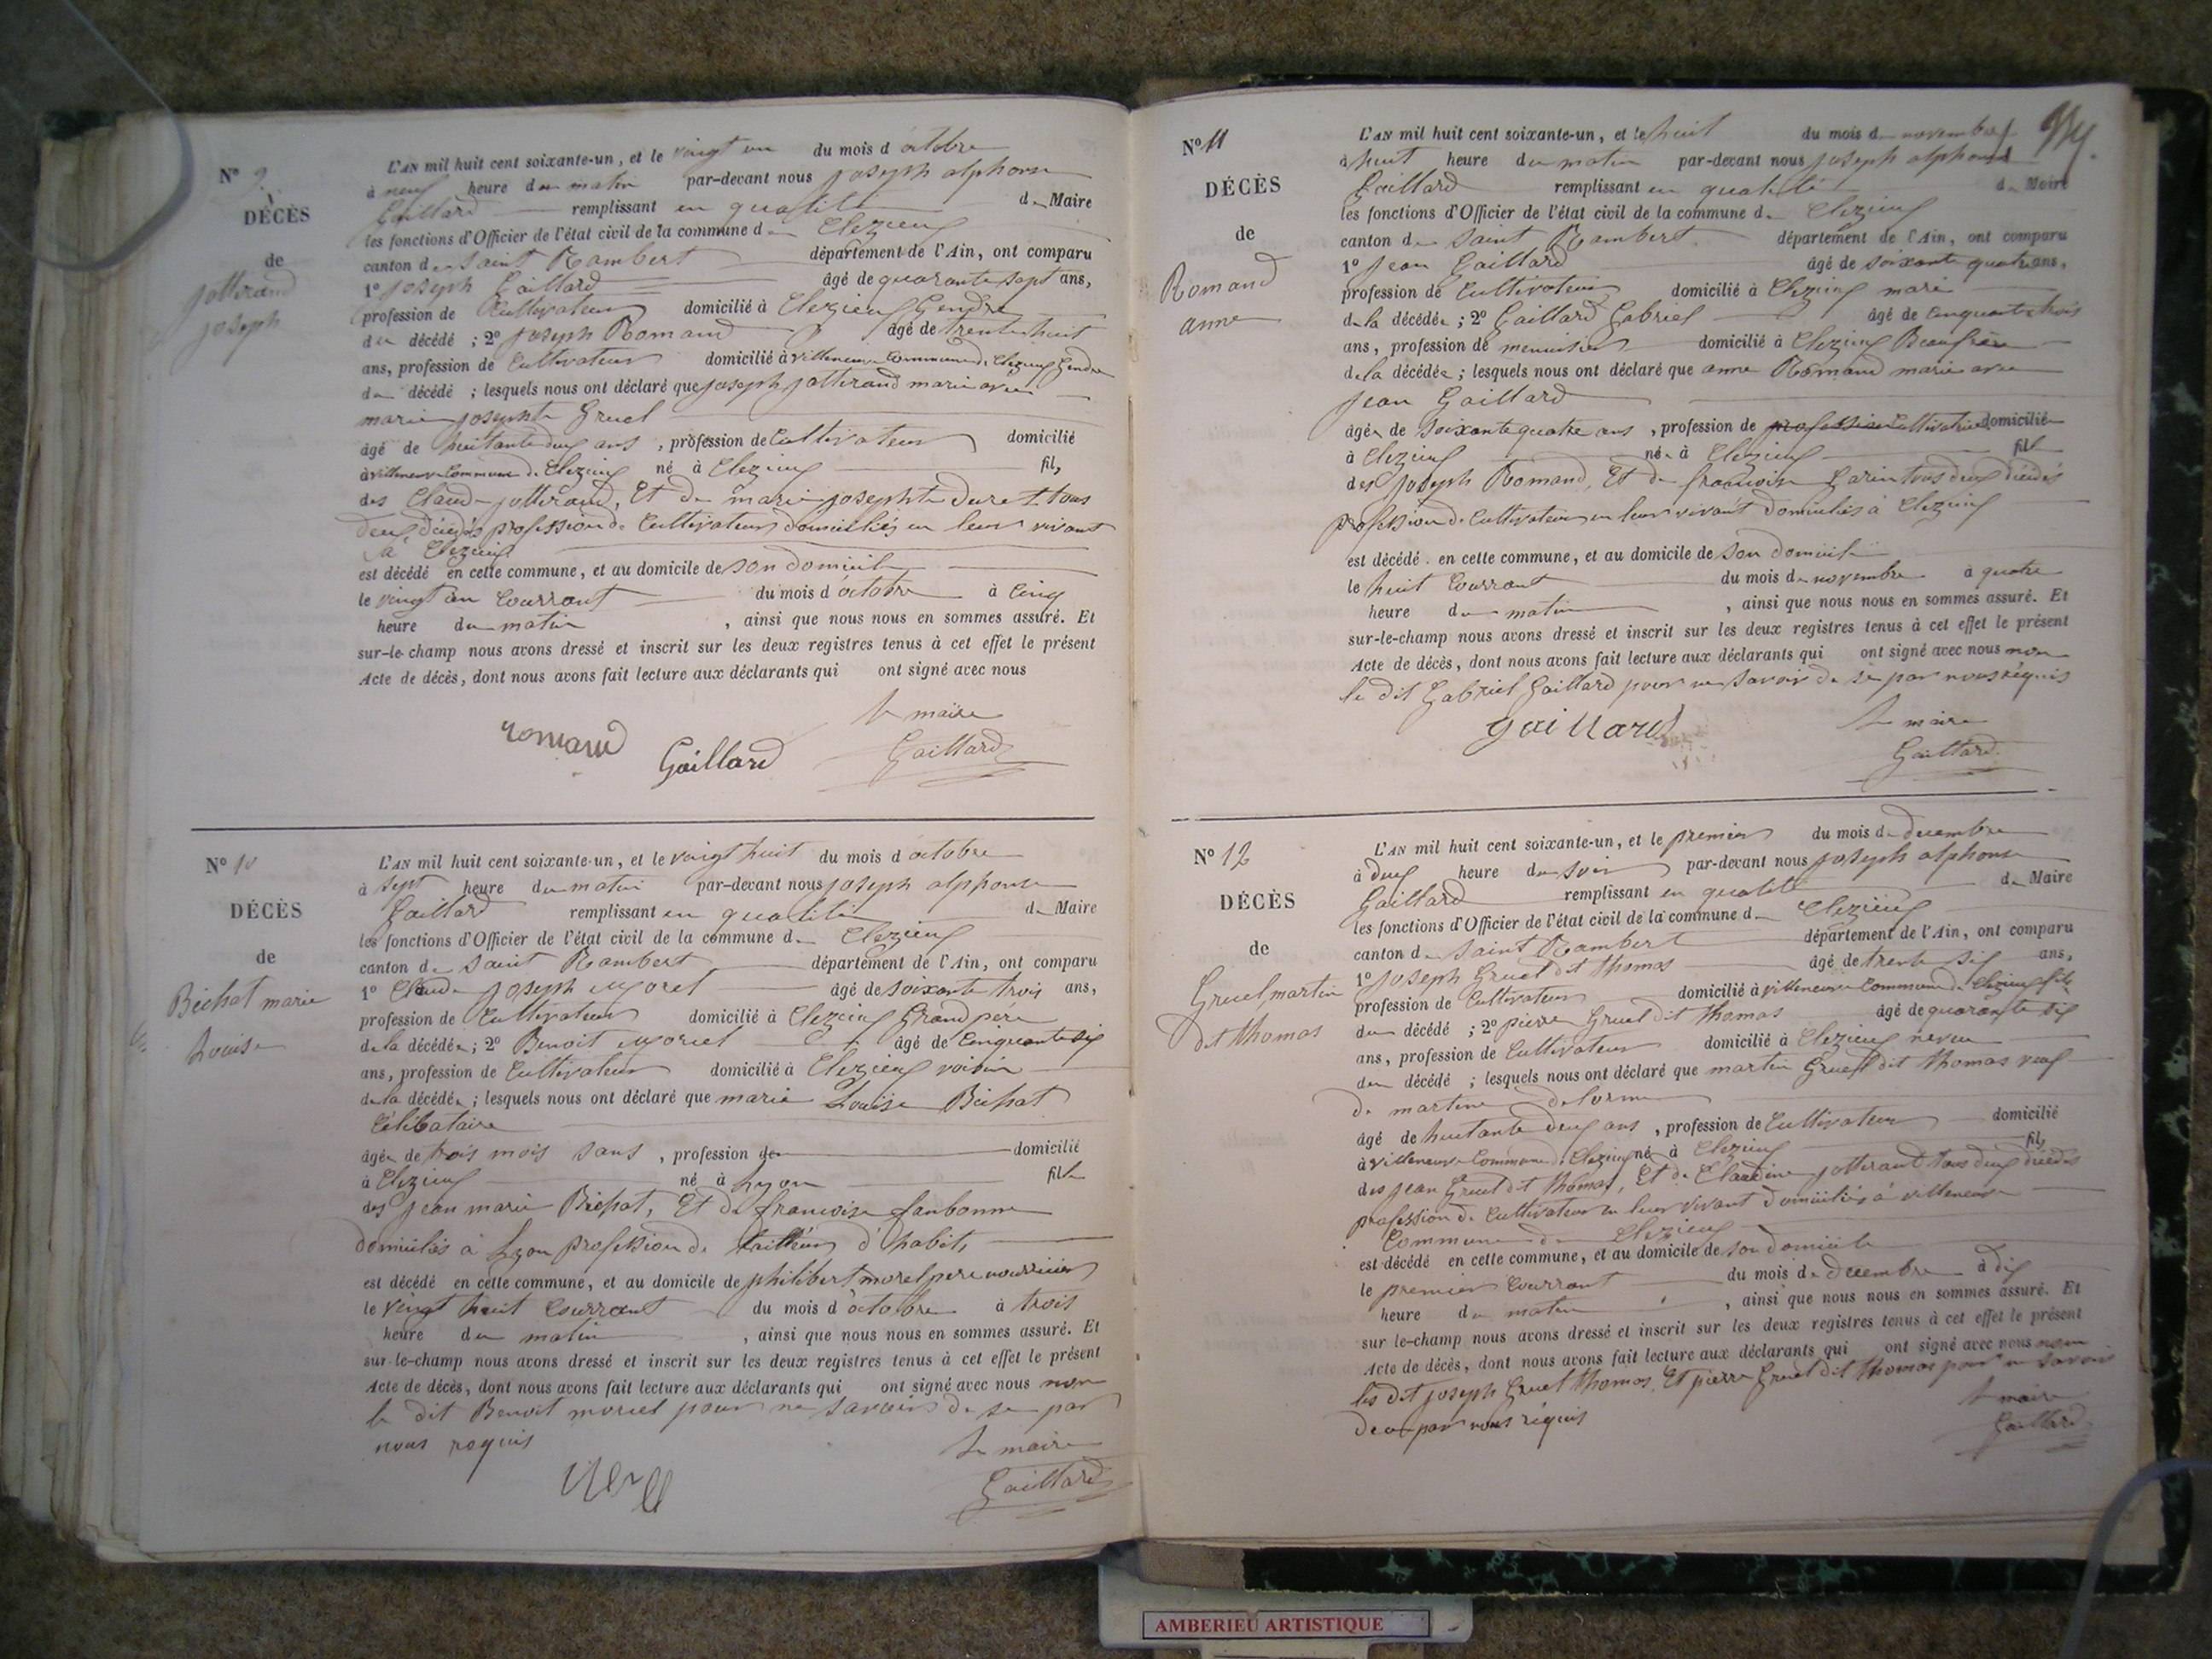 N° 9
DÉCÈS
de
jotterand
joseph
L'AN mil huit cent soixante-un, et le vingt un du mois d'octobre
à neuf heure du matin par-devant nous joseph alphonse
Gaillard remplissant en qualité de Maire
les fonctions d'Officier de l'état civil de la commune de Clezieu
canton de Saint Rambert département de l'Ain, ont comparu
1° joseph Gaillard âgé de quarante sept ans,
profession de Cultivateur domicilié à Clezieu Gendre
du décédé ; 2° joseph Romand âgé de trente huit
ans, profession de Cultivateur domicilié à villeneuve Commune de Clezieu Gendre
du décédé ; lesquels nous ont déclaré que joseph jotterand marié avec
marie josephte Gruel
âgé de huitante deux ans , profession de Cultivateur domicilié
à villeneuve Commune de Clezieu né à Clezieu fils
des Claude jotterand, Et de marie josephte Duret tous
deux décédés profession de Cultivateur domiciliés en leur vivant
à Clezieu
est décédé en cette commune, et au domicile de son domicile
le vingt un Courrant du mois d'octobre à Cinq
heure du matin , ainsi que nous nous en sommes assuré. Et
sur-le-champ nous avons dressé et inscrit sur les deux registres tenus à cet effet le présent
Acte de décès, dont nous avons fait lecture aux déclarants qui ont signé avec nous
le maire
romand Gaillard Gaillard
N° 10
DÉCÈS
de
Bichat marie
Louise
L'AN mil huit cent soixante-un, et le vingt huit du mois d'octobre
à sept heure du matin par-devant nous joseph alphonse
Gaillard remplissant en qualité de Maire
les fonctions d'Officier de l'état civil de la commune de Clezieu
canton de Saint Rambert département de l'Ain, ont comparu
1° Claude joseph Morel âgé de soixante trois ans,
profession de Cultivateur domicilié à Clezieu Grand pere
de la décédée ; 2° Benoit Moriel âgé de Cinquante six
ans, profession de Cultivateur domicilié à Clezieu voisin
de la décédée ; lesquels nous ont déclaré que marie Louise Bichat
Célibataire
âgée de trois mois sans , profession de domicilié
à Clezieu né à Lyon fille
des jean marie Bichat, Et de francoise
domiciliés à Lyon profession de tailleur d'habits
est décédé en cette commune, et au domicile de philibert morel pere nourricier
le vingt huit Courrant du mois d'octobre à trois
heure du matin , ainsi que nous nous en sommes assuré. Et
sur-le-champ nous avons dressé et inscrit sur les deux registres tenus à cet effet le présent
Acte de décès, dont nous avons fait lecture aux déclarants qui ont signé avec nous non
le dit Benoit moriel pour ne savoir de se par
nous requis
le maire
Gaillard
N° 11
DÉCÈS
de
Romand
anne
L'AN mil huit cent soixante-un, et le huit du mois de novembre
à huit heure du matin par-devant nous joseph alphonse
Gaillard remplissant en qualité de Maire
les fonctions d'Officier de l'état civil de la commune de Clezieu
canton de Saint Rambert département de l'Ain, ont comparu
1° Jean Gaillard âgé de soixante quatre ans,
profession de Cultivateur domicilié à Clezieu mari
de la décédée ; 2° Gaillard Gabriel âgé de Cinquante trois
ans, profession de menuisier domicilié à Clezieu Beaufrère
de la décédée ; lesquels nous ont déclaré que anne Romand mariée avec
Jean Gaillard
âgée de soixante quatre ans , profession de profession Cultivatrice domiciliée
à Clezieu née à Clezieu fille
des joseph Romand, Et de francoise tous deux décédés
profession de Cultivateur en leur vivant domiciliés à Clezieu
est décédé en cette commune, et au domicile de son domicile
le huit Courrant du mois de novembre à quatre
heure du matin , ainsi que nous nous en sommes assuré. Et
sur-le-champ nous avons dressé et inscrit sur les deux registres tenus à cet effet le présent
Acte de décès, dont nous avons fait lecture aux déclarants qui ont signé avec nous non
le dit Gabriel Gaillard pour ne savoir de se par nous réquis
gaillard le maire
Gaillard
N° 12
DÉCÈS
de
Gruel martin
dit thomas
L'AN mil huit cent soixante-un, et le premier du mois de decembre
à deux heure du soir par-devant nous joseph alphonse
Gaillard remplissant en qualité de Maire
les fonctions d'Officier de l'état civil de la commune de Clezieu
canton de Saint Rambert département de l'Ain, ont comparu
1° joseph Gruel dit thomas âgé de trente six ans,
profession de Cultivateur domicilié à villeneuve Commune de Clezieu fils
du décédé ; 2° pierre Gruel dit thomas âgé de quarante six
ans, profession de Cultivateur domicilié à Clezieu neveu
du décédé ; lesquels nous ont déclaré que martin Gruel dit thomas veuf
de martine delorme
âgé de huitante deux ans , profession de Cultivateur domicilié
à villeneuve Commune de Clezieu né à Clezieu fils
des jean Gruel dit thomas, Et de Claudine jotterand tous deux décédés
profession de Cultivateur en leur vivant domiciliés à villeneuve
Commune de Clezieu
est décédé en cette commune, et au domicile de son domicile
le premier Courrant du mois de decembre à dix
heure du matin , ainsi que nous nous en sommes assuré. Et
sur-le-champ nous avons dressé et inscrit sur les deux registres tenus à cet effet le présent
Acte de décès, dont nous avons fait lecture aux déclarants qui ont signé avec nous non
les dit joseph Gruel thomas Et pierre Gruel dit thomas pour ne savoir
de ce par nous réquis
le maire
Gaillard
AMBERIEU ARTISTIQUE